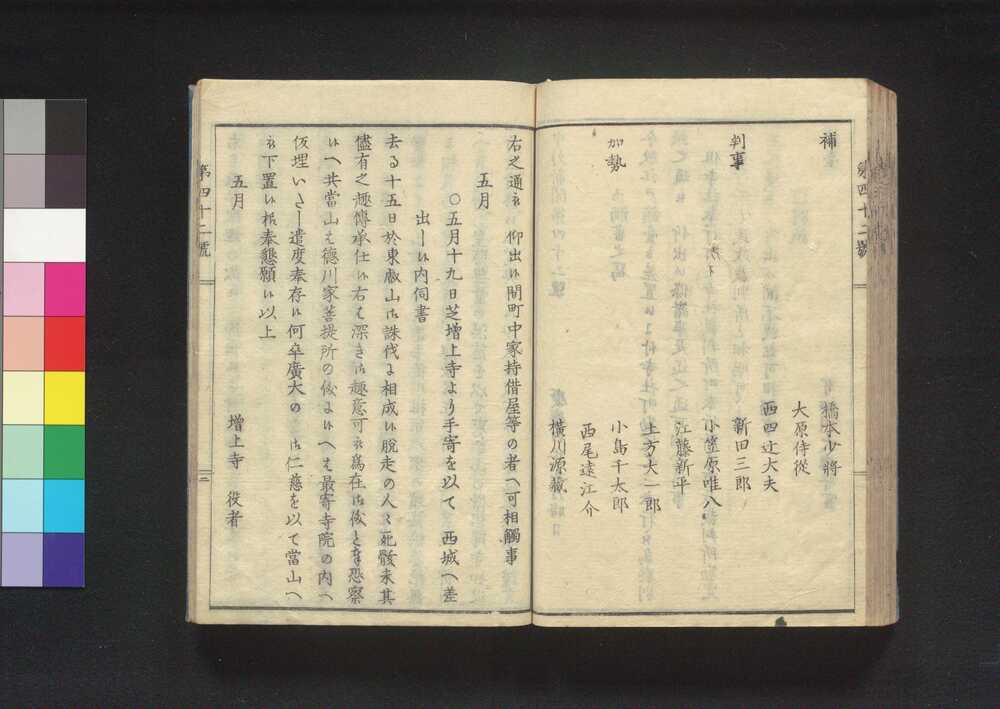 第四十二號
補
橋本少將
大原侍從
西四辻大夫
判事
新田三郎
小笠原唯八
江藤新平
土方大一郎
加勢
小島千太郎
西尾遠江介
橫川源藏
右之通被 仰出候間町中家持借屋等の者へ可相觸事
五月
〇五月十九日芝增上寺より手寄を以て 西城へ差
出しい内伺書
去る十五日於東叡山御誅伐に相成候脱走の人々死骸未其
儘有之趣傳承仕候右は深き御趣意可被爲在御儀と奉恐察
候へ共當山は德川家菩提所の儀に候へは最寄寺院の内へ
仮埋いたし遣度奉存候何卒廣大の 御仁慈を以て當山へ
被下置候樣奉懇願候以上
五月
增上寺 役者
第四十二號
三